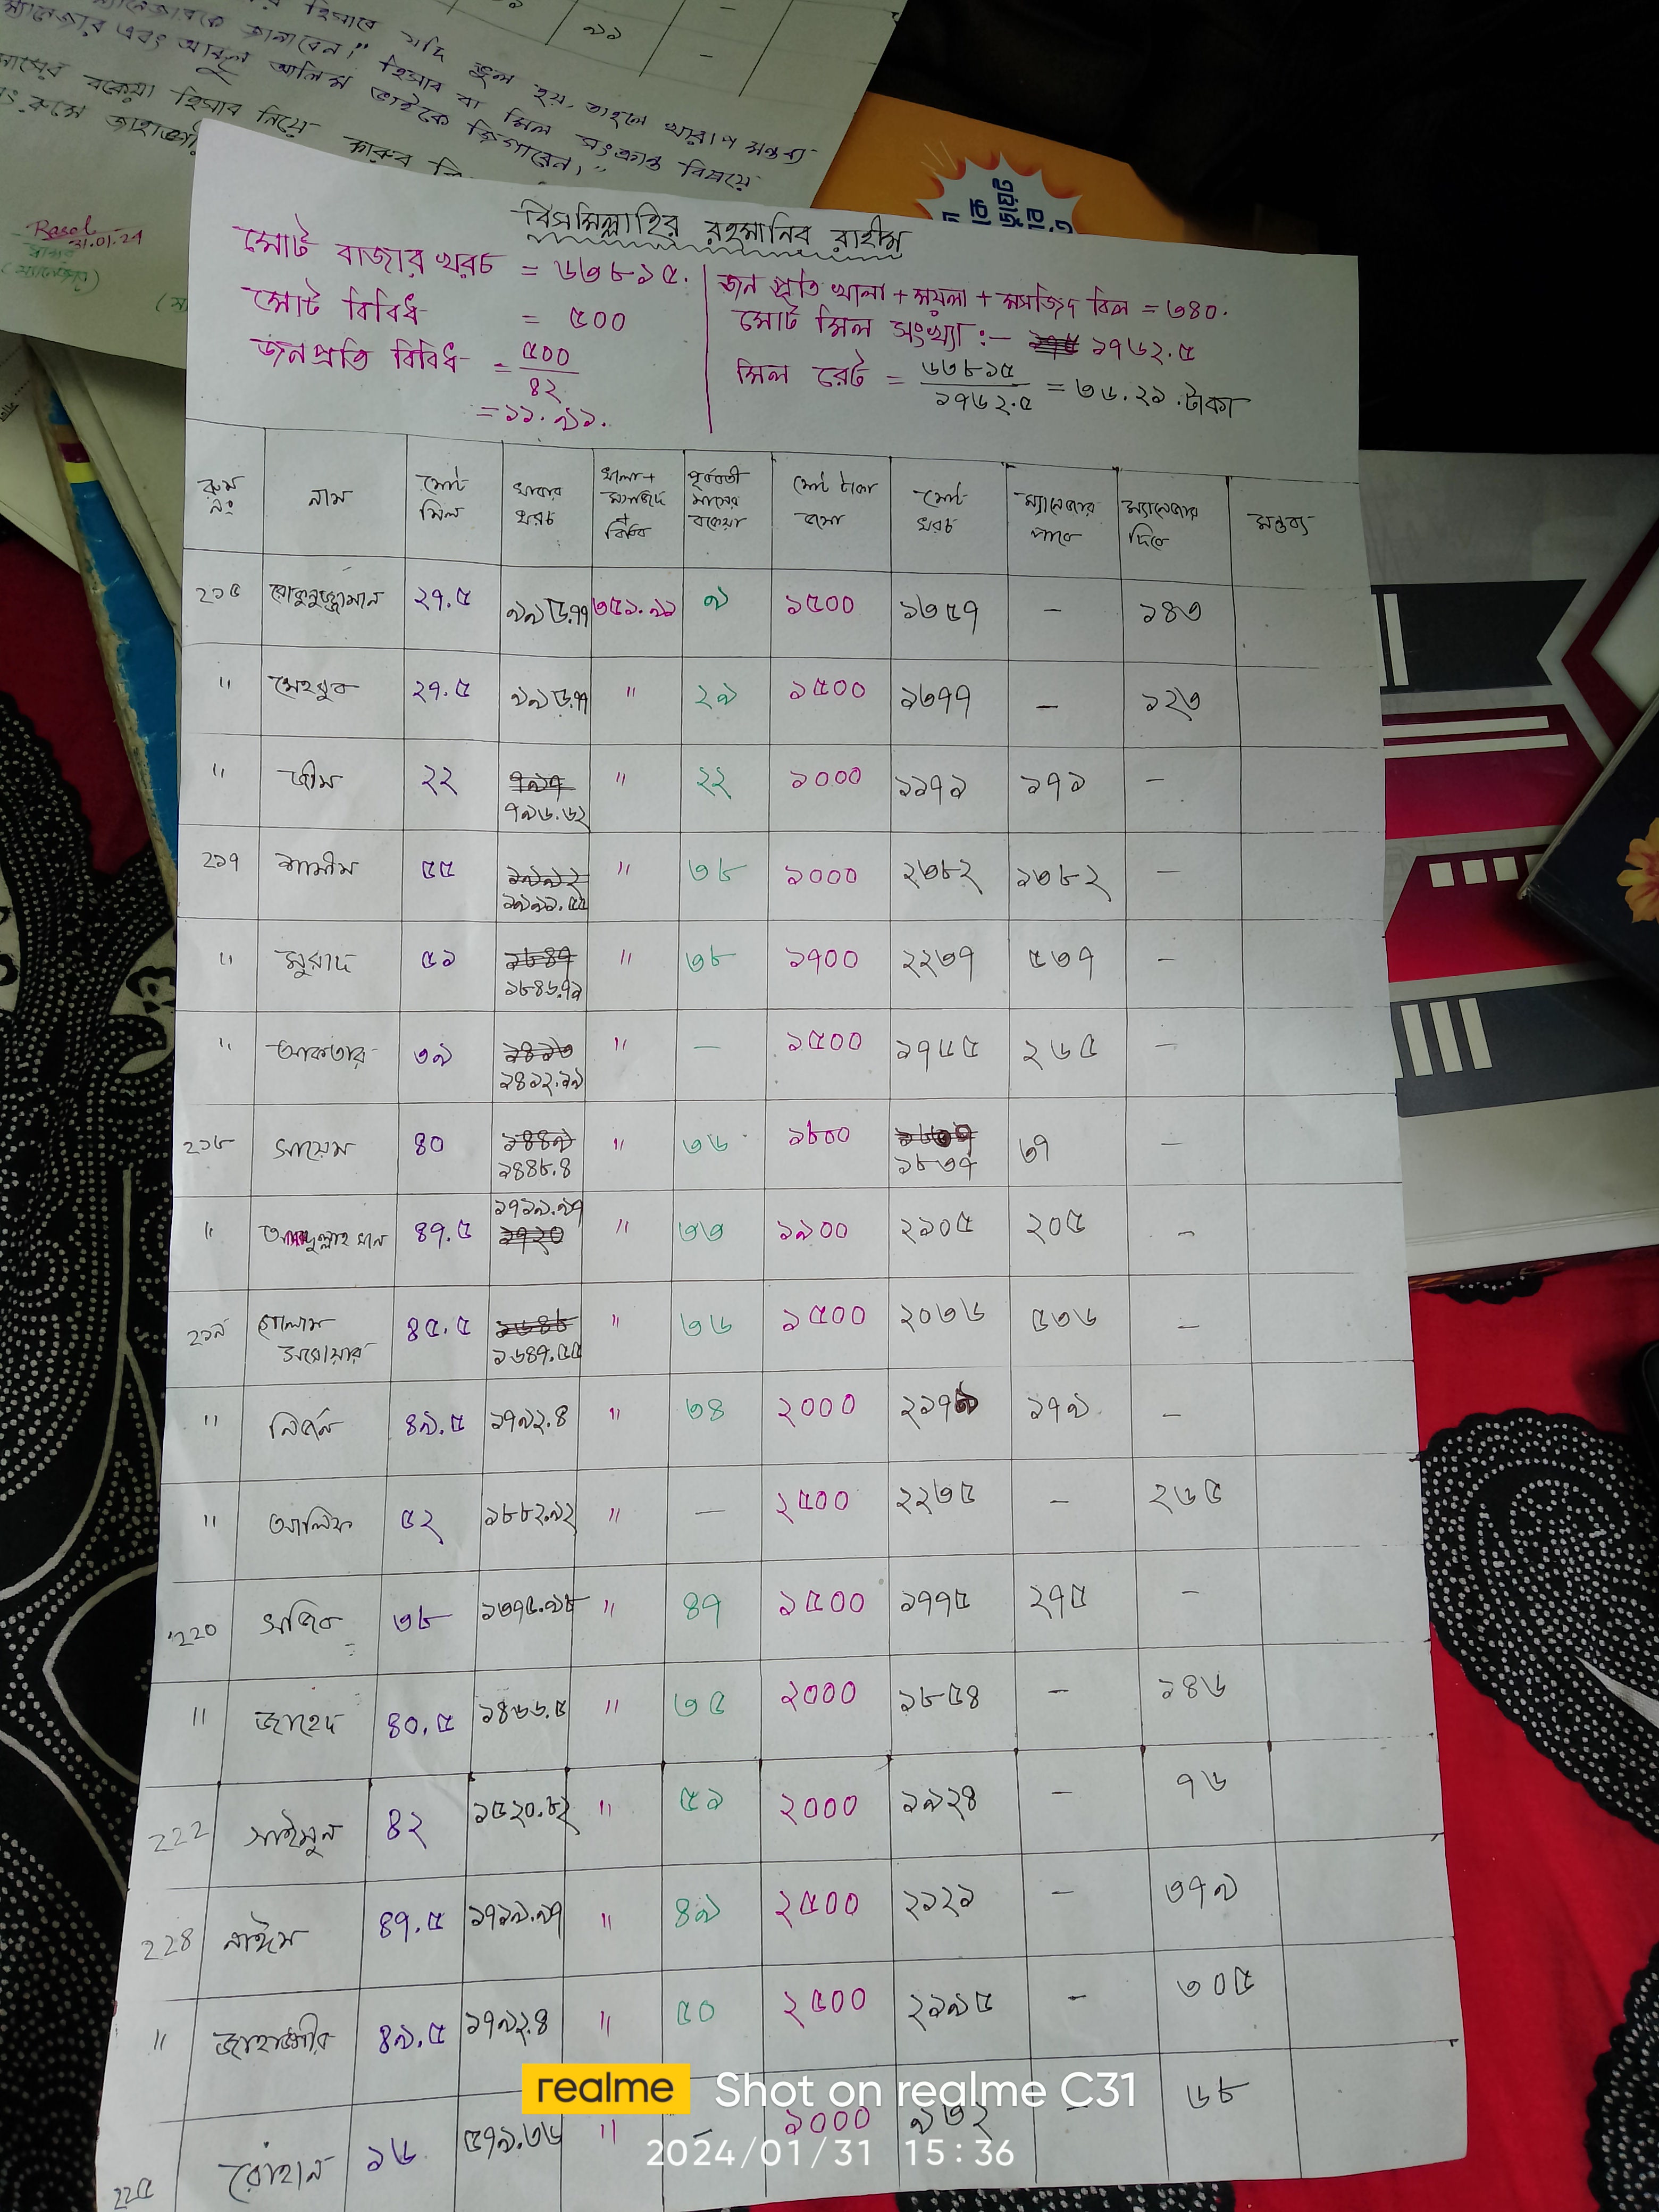 হিসাবে যদি ভুল হয়, তাহলে খারাপ মন্তব্য
ম্যানেজারকে জানাবেন।" হিসাব বা মিল সংক্রান্ত বিষয়ে
ম্যানেজার এবং আবুল আলিম ভাইকে জিগাবেন।"
মাসের বকেয়া হিসাব নিয়ে কারুর
রুমে
৯৯
Rasel
31.01.24
(ম্যানেজার)
বিসমিল্লাহির রহমানির রাহীম
মোট বাজার খরচ = ৬৩৮৯৫.
মোট বিবিধ = ৫০০
জনপ্রতি বিবিধ = ৫০০
৪২
= ১১.৯১.
জন প্রতি খালা + ময়লা + মসজিদ বিল = ৩৪০.
মোট মিল সংখ্যা:- ১৭৬২.৫
মিল রেট = ৬৩৮১৫ / ১৭৬২.৫ = ৩৬.২১ টাকা
রুম নং নাম মোট মিল খাবার খরচ খালা + মসজিদ + বিবিধ পূর্ববর্তী মাসের বকেয়া মোট টাকা জমা মোট খরচ ম্যানেজার পাবে ম্যানেজার দিবে মন্তব্য
২১৫ রোকুনুজ্জামান ২৭.৫ ৯৯৫.৭৭ ৩৫১.৯১ ৯ ১৫০০ ১৩৫৭ — ১৪৩
" মেহবুব ২৭.৫ ৯৯৫.৭৭ " ২৯ ১৫০০ ১৩৭৭ — ১২৩
" জীম ২২ ৭৯৬.৬২ " ২২ ১০০০ ১১৭১ ১৭১ —
২১৭ শামীম ৫৫ ১৯৯১.৫৫ " ৩৮ ১০০০ ২৩৮২ ১৩৮২ —
" মুরাদ ৫১ ১৮৪৬.৭১ " ৩৮ ১৭০০ ২২৩৭ ৫৩৭ —
" আকতার ৩৯ ১৪১২.১৯ " — ১৫০০ ১৭৬৫ ২৬৫ —
২১৮ সায়েম ৪০ ১৪৪৮.৪ " ৩৬ ১৮০০ ১৮৩৭ ৩৭ —
" আব্দুল্লাহ খান ৪৭.৫ ১৭১৯.৯৭ " ৩৩ ১৯০০ ২১০৫ ২০৫ —
২১৯ গোলাম সরোয়ার ৪৫.৫ ১৬৪৭.৫৫ " ৩৬ ১৫০০ ২০৩৬ ৫৩৬ —
" নির্জন ৪৯.৫ ১৭৯২.৪ " ৩৪ ২০০০ ২১৭৯ ১৭৯ —
" আলিফ ৫২ ১৮৮২.৯২ " — ২৫০০ ২২৩৫ — ২৬৫
220 সজিব ৩৮ ১৩৭৫.৯৮ " ৪৭ ১৫০০ ১৭৭৫ ২৭৫ —
" জাহেদ ৪০.৫ ১৪৬৬.৫ " ৩৫ ২০০০ ১৮৫৪ — ১৪৬
222 সাইমুন ৪২ ১৫২০.৮২ " ৫১ ২০০০ ১৯২৪ — ৭৬
228 নাঈম ৪৭.৫ ১৭১৯.৯৭ " ৪৯ ২৫০০ ২১২১ — ৩৭৯
" জাহাঙ্গীর ৪৯.৫ ১৭৯২.৪ " ৫০ ২৫০০ ২১৯৫ — ৩০৫
২২৫ রোহান ১৬ ৫৭৯.৩৬ " — ১০০০ ৯৩২ — ৬৮
realme Shot on realme C31
2024/01/31 15:36